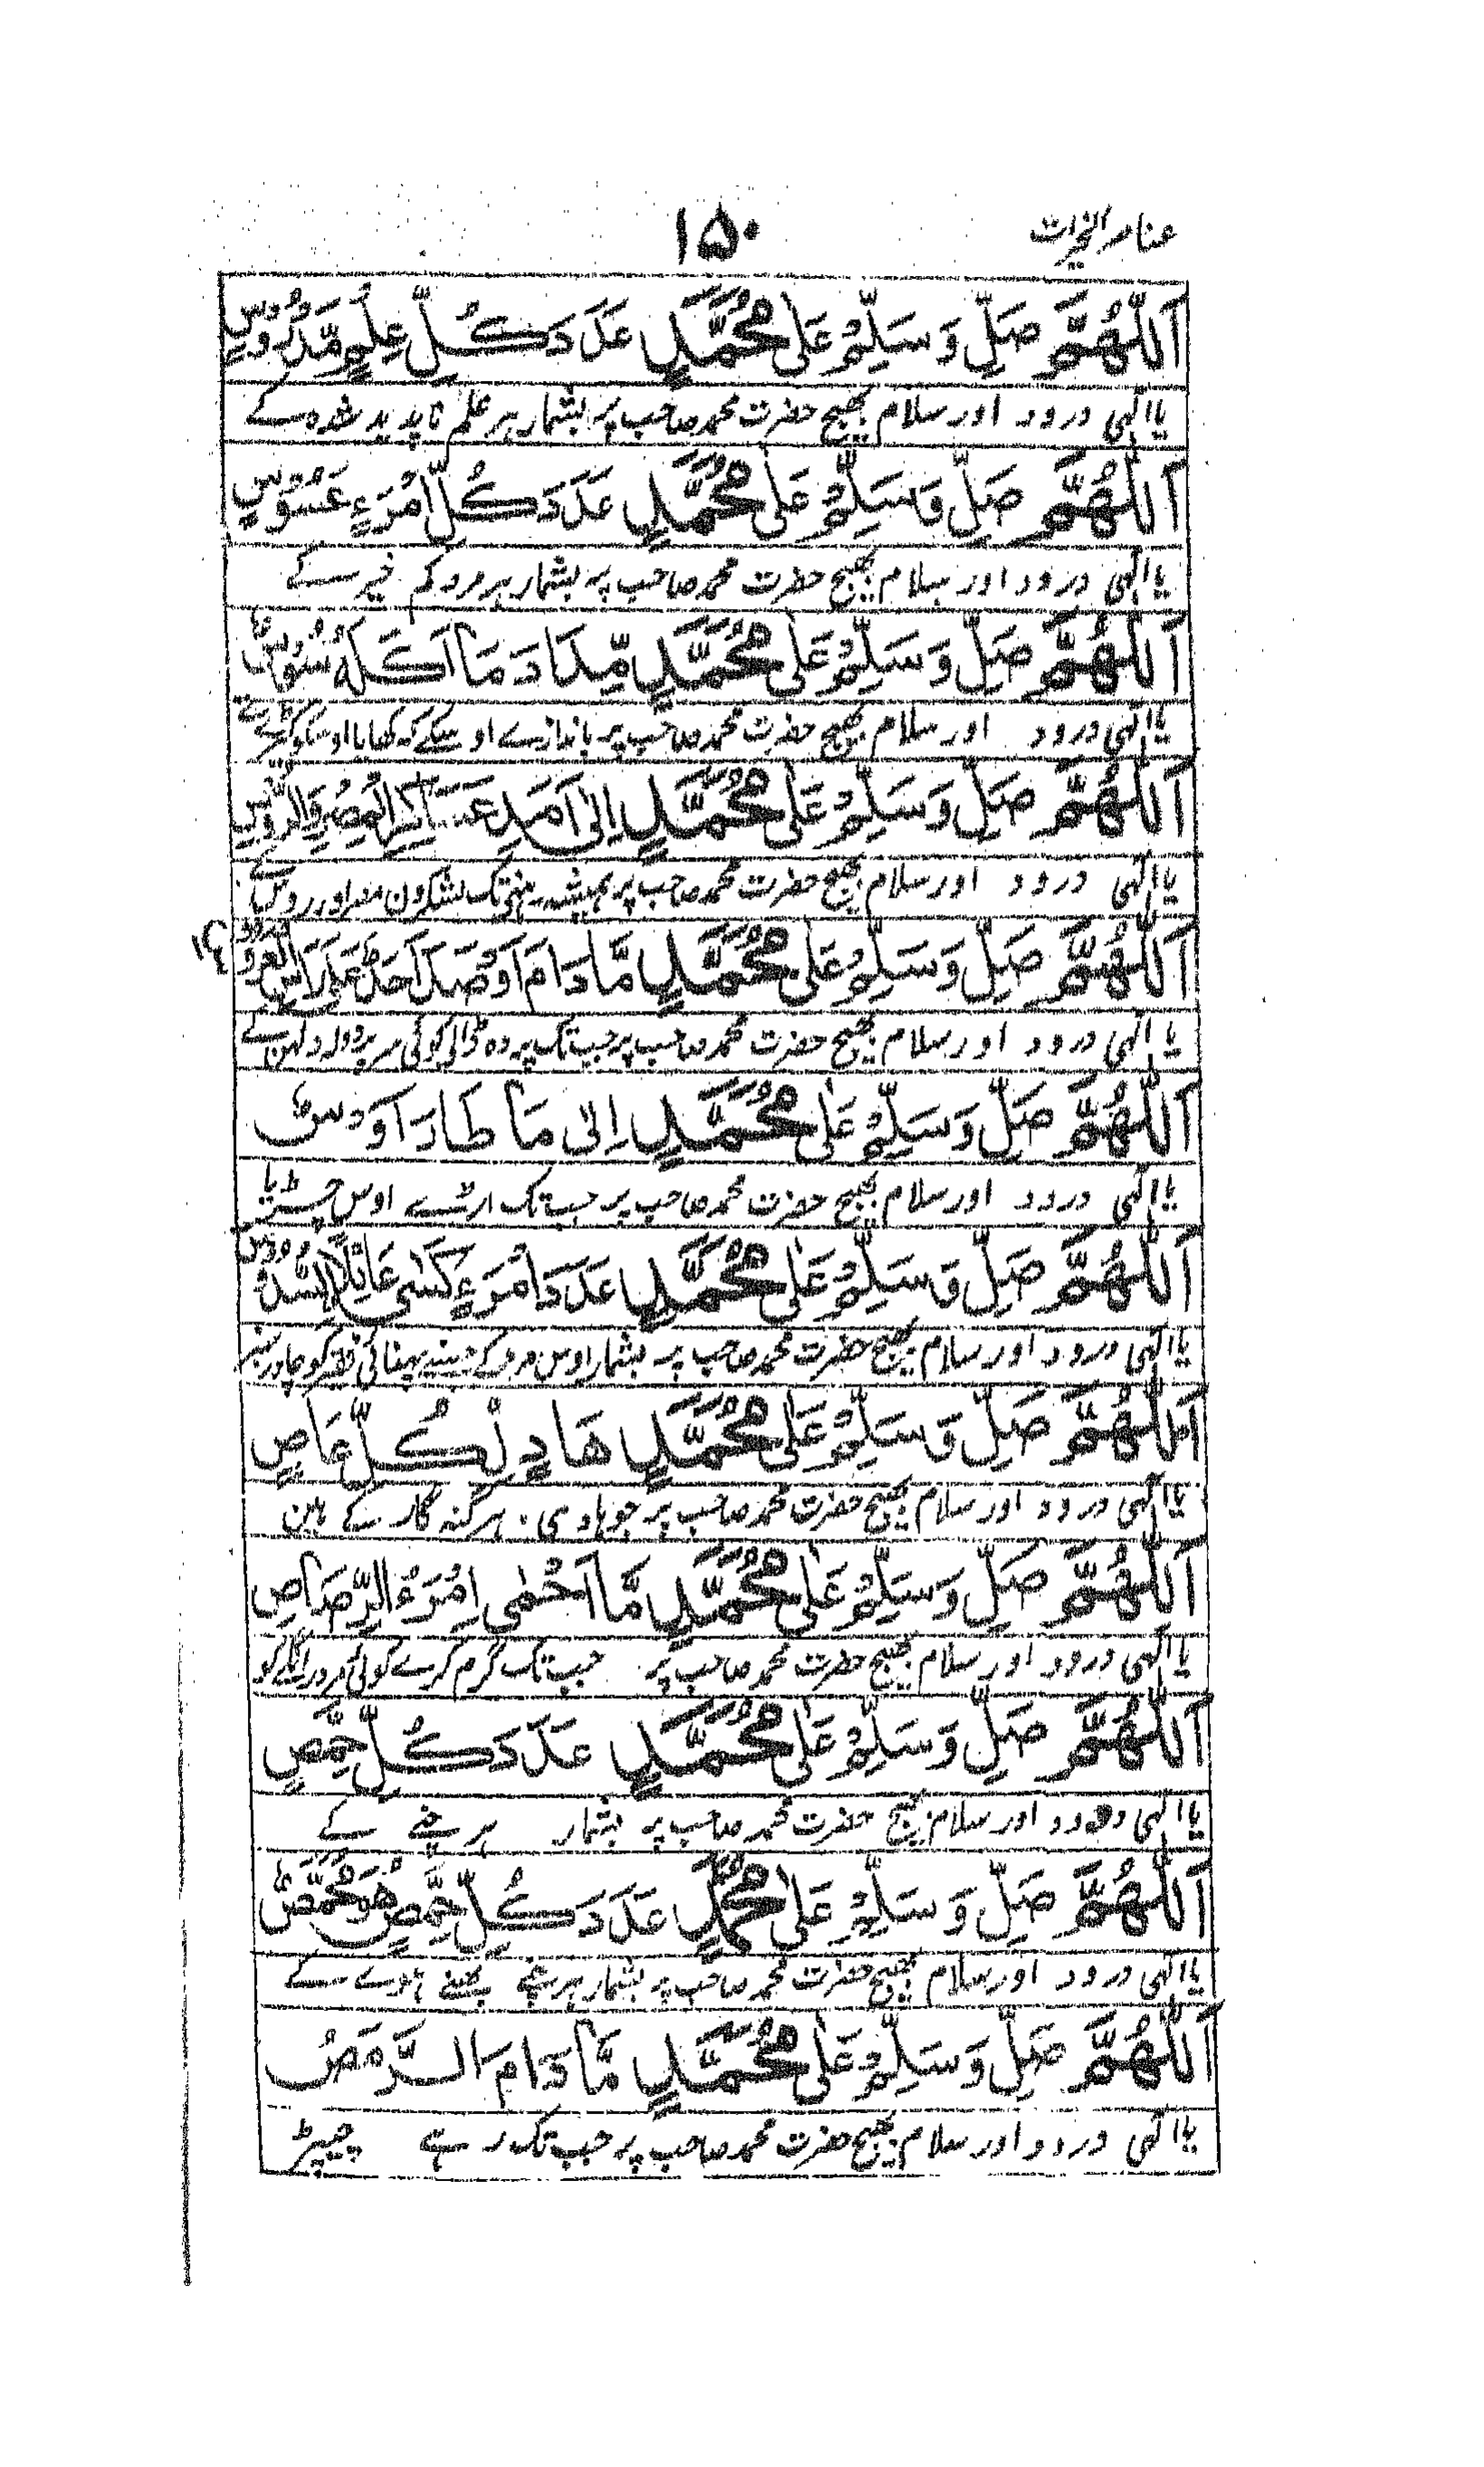 عناصر الخیرات
۱۵۰
اَللّٰهُمَّ صَلِّ وَسَلِّمْ عَلٰى مُحَمَّدٍ عَدَدَ كُلِّ عِلْمٍ مَّدْرُوْسٍ
یا الٰہی درود اور سلام بھیج حضرت محمد صاحب پر بشمار ہر علم ناپدید شدہ کے
اَللّٰهُمَّ صَلِّ وَسَلِّمْ عَلٰى مُحَمَّدٍ عَدَدَ كُلِّ امْرَءٍ عَسُوْسٍ
یا الٰہی درود اور سلام بھیج حضرت محمد صاحب پر بشمار ہر مرد کم خیر کے
اَللّٰهُمَّ صَلِّ وَسَلِّمْ عَلٰى مُحَمَّدٍ مِّدَادَ مَا اَكَلَهٗ سُوْسٌ
یا الٰہی درود اور سلام بھیج حضرت محمد صاحب پر باندازے اوسکے کہ کھایا اوسکو
اَللّٰهُمَّ صَلِّ وَسَلِّمْ عَلٰى مُحَمَّدٍ اِلٰى اَمَدِ عَسَاكِرِ الْمِصْرِ وَالرُّوْسِ
یا الٰہی درود اور سلام بھیج حضرت محمد صاحب پر ہمیشہ رہنے تک لشکرون مصر اور روس کے
اَللّٰهُمَّ صَلِّ وَسَلِّمْ عَلٰى مُحَمَّدٍ مَّا دَامَ اَوْصَدَ اَحَدٌ عَلٰى رَاْسِ الْعَرُوْسِ
یا الٰہی درود اور سلام بھیج حضرت محمد صاحب پر جب تک پردہ ڈالے کوئی سر پر دولہ دلہن کے
اَللّٰهُمَّ صَلِّ وَسَلِّمْ عَلٰى مُحَمَّدٍ اِلٰى مَا طَارَ اَوْدَسٌ
یا الٰہی درود اور سلام بھیج حضرت محمد صاحب پر جب تک اڑے اوس چڑیا
اَللّٰهُمَّ صَلِّ وَسَلِّمْ عَلٰى مُحَمَّدٍ عَدَدَ امْرَءٍ كَسٰى عَائِلًا السُّدُوْسَ
یا الٰہی درود اور سلام بھیج حضرت محمد صاحب پر بشمار اوس مرد کے جسنے پہنائی فقیر کو چادر سبز
اَللّٰهُمَّ صَلِّ وَسَلِّمْ عَلٰى مُحَمَّدٍ هَادٍ لِكُلِّ عَاصٍ
یا الٰہی درود اور سلام بھیج حضرت محمد صاحب پر جو ہادی ہر گنہ گار کے ہین
اَللّٰهُمَّ صَلِّ وَسَلِّمْ عَلٰى مُحَمَّدٍ مَّا اَحْمٰى اِمْرَءُ الرَّصَاصَ
یا الٰہی درود اور سلام بھیج حضرت محمد صاحب پر جب تک گرم کرے کوئی مرد رانگے کو
اَللّٰهُمَّ صَلِّ وَسَلِّمْ عَلٰى مُحَمَّدٍ عَدَدَ كُلِّ حِمَّصٍ
یا الٰہی درود اور سلام بھیج حضرت محمد صاحب پر بشمار ہر چنے کے
اَللّٰهُمَّ صَلِّ وَسَلِّمْ عَلٰى مُحَمَّدٍ عَدَدَ كُلِّ حِمَّصٍ هُوَ مُحَمَّصٌ
یا الٰہی درود اور سلام بھیج حضرت محمد صاحب پر بشمار ہر چنے بھنے ہوے کے
اَللّٰهُمَّ صَلِّ وَسَلِّمْ عَلٰى مُحَمَّدٍ مَّا دَامَ الرَّمَصُ
یا الٰہی درود اور سلام بھیج حضرت محمد صاحب پر جب تک رہے چیپڑ